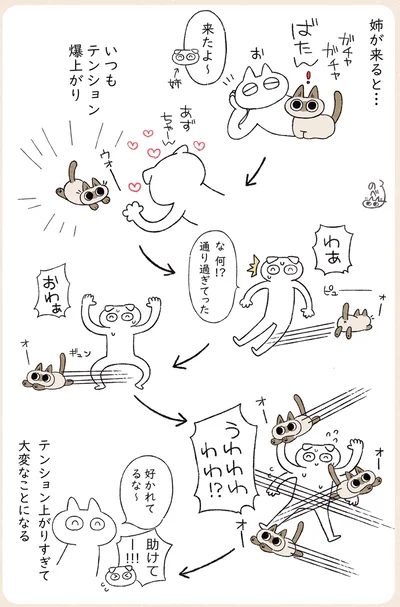 姉が来ると…
ガチャ
ガチャ
ばたん!
お
来たよ〜
←姉
いつも
テンション
爆上がり
あず
ちゃーん
ウオー
のべ
わあ
ピュー
な 何!?
通り過ぎてった
おわぁ
オー
ギュン
オー
オー
オー
うわわわ
わわ!?
好かれて
るな〜
助けて
ー!!!
テンション上がりすぎて
大変なことになる